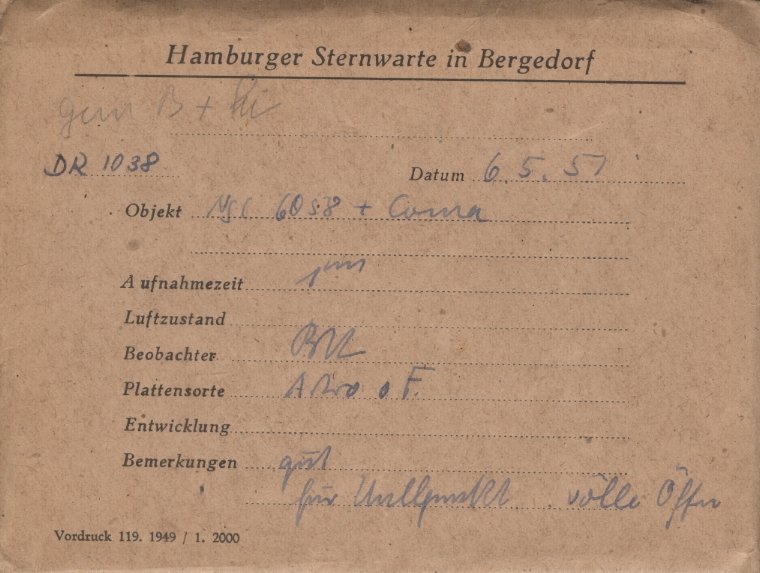 Hamburger Sternwarte in Bergedorf
gem B +
DR 1038
Datum 6.5.51
Objekt NGC 6058 + Coma
Aufnahmezeit 1 m
Luftzustand
Beobachter
Plattensorte Astro o F.
Entwicklung
Bemerkungen gut
für Nullpunkt volle Öffn
Vordruck 119. 1949 / 1. 2000